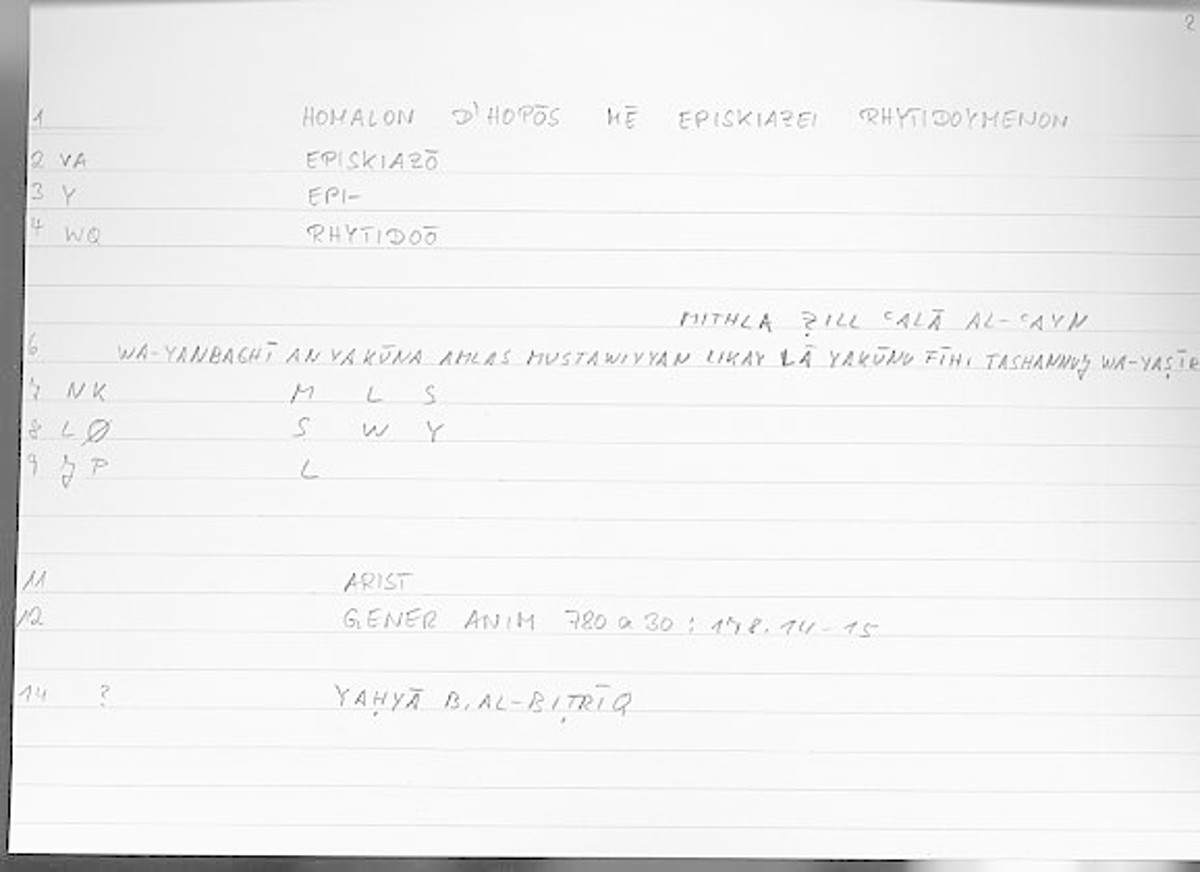 2
1 HOMALON D'HOPŌS MĒ EPISKIAZEI RHYTIDOYMENON
2 VA EPISKIAZŌ
3 Y EPI-
4 WQ RHYTIDOŌ
MITHLA ẒILL ʿALĀ AL-ʿAYN
6 WA-YANBAGHĪ AN YAKŪNA AMLAS MUSTAWIYYAN LIKAY LĀ YAKŪNU FĪHI TASHANNUJ WA-YAṢĪR
7 NK M L S
8 LØ S W Y
9 JP L
11 ARIST
12 GENER ANIM 780 a 30 : 178.14-15
14 ? YAḤYĀ B. AL-BIṬRĪQ